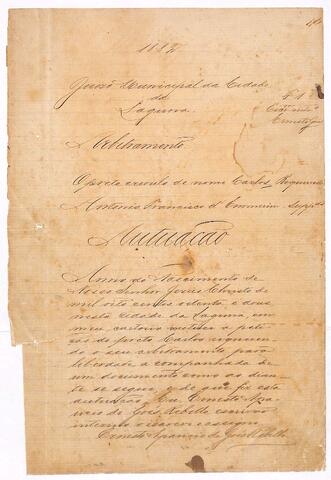 1882
Juizo Municipal da Cidade
da
Laguna
Arbitramento
O preto escravo de nome Carlos
Antonio Francisco
Autuação
Anno do Nascimento de
Nosso Senhor Jesus Christo de
mil oito centos oitenta e dous
nesta Cidade da Laguna, em
meu cartorio a peti-
ção do preto Carlos requeren-
do o seu arbitramento para
liberdade acompanhada de
um documento como ao dian-
te se segue, e de que fiz esta
autuação. Eu Ernesto Apa-
ricio de Góes Rebello escrivão
interino o escrevi e assigno
Ernesto Aparicio de Góes Rebello